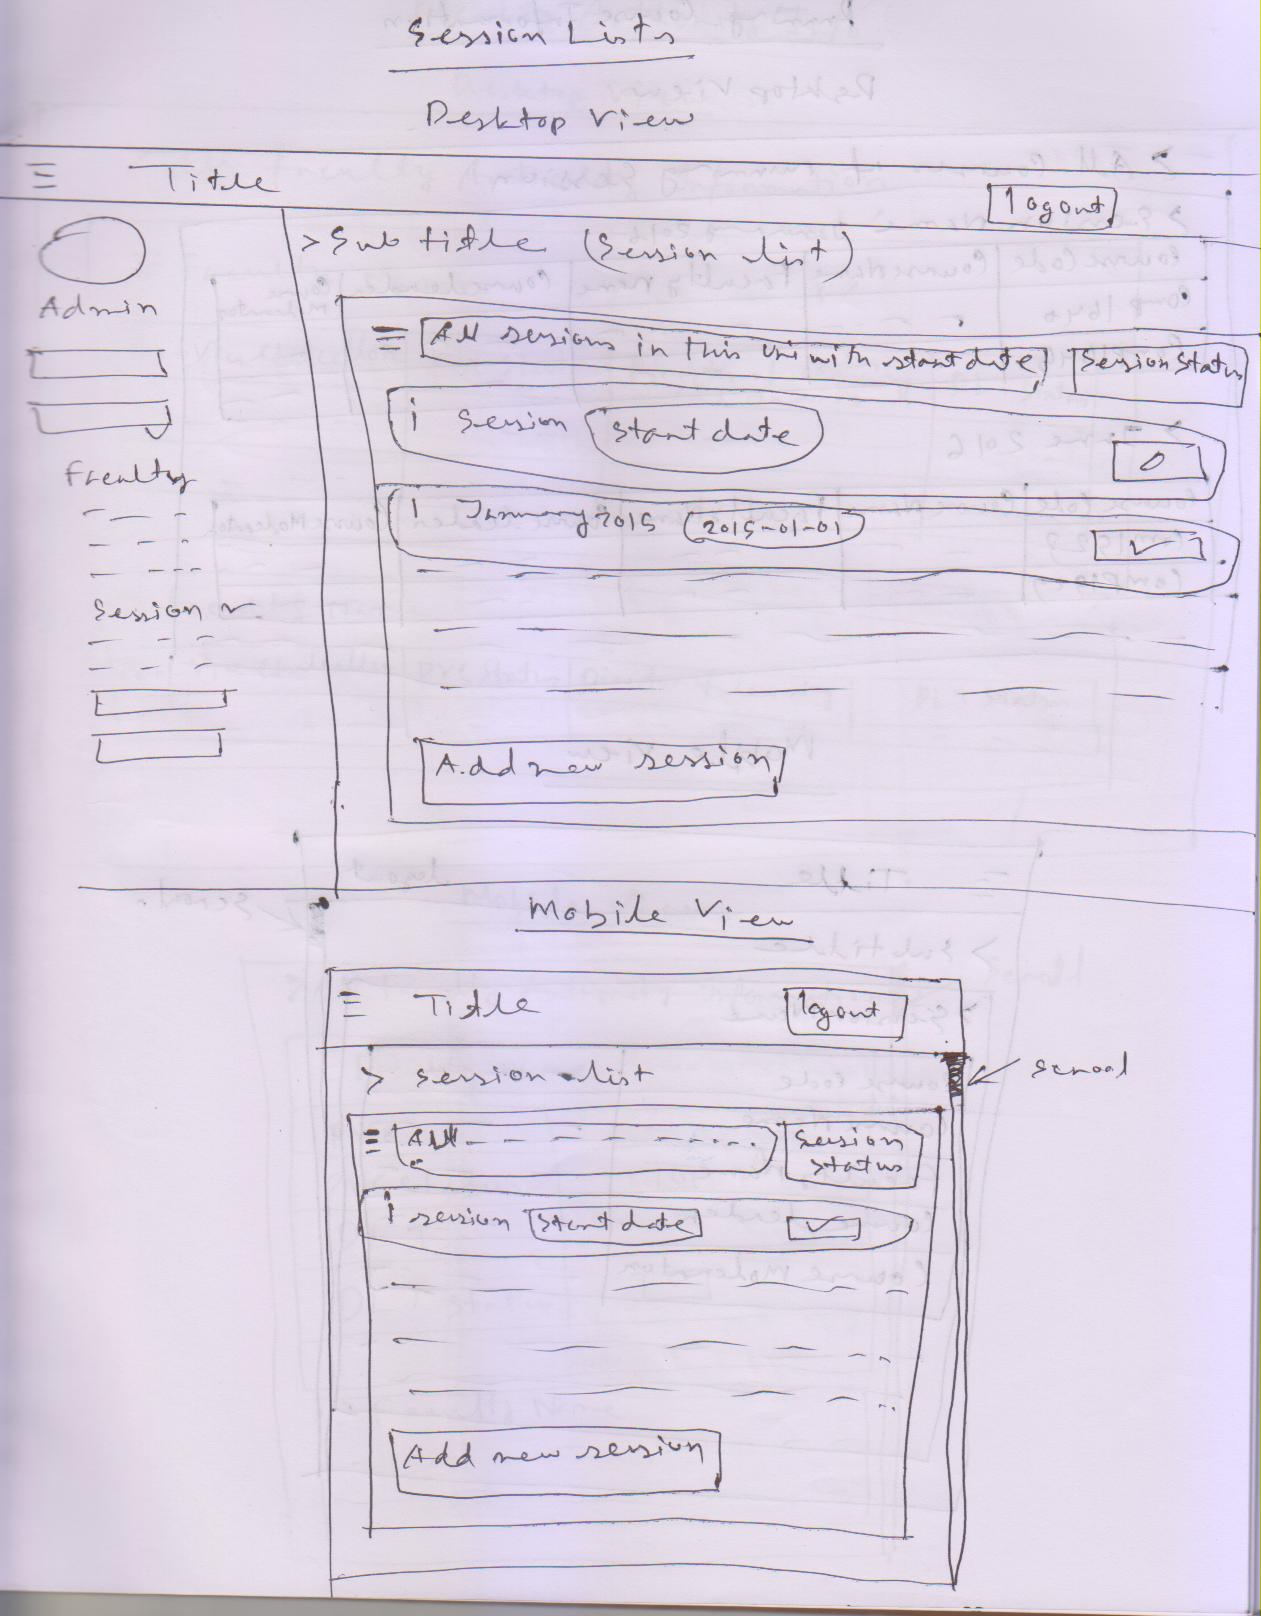 Session Lists
Desktop View
Title
logout
> Sub title (Session list)
Admin
All sessions in this uni with start date
Session Status
i Session start date
Faculty
i January 2015 2015-01-01
Session
Add new session
Mobile View
Title
logout
> session list
scrool
All
Session
status
i session start date
Add new session